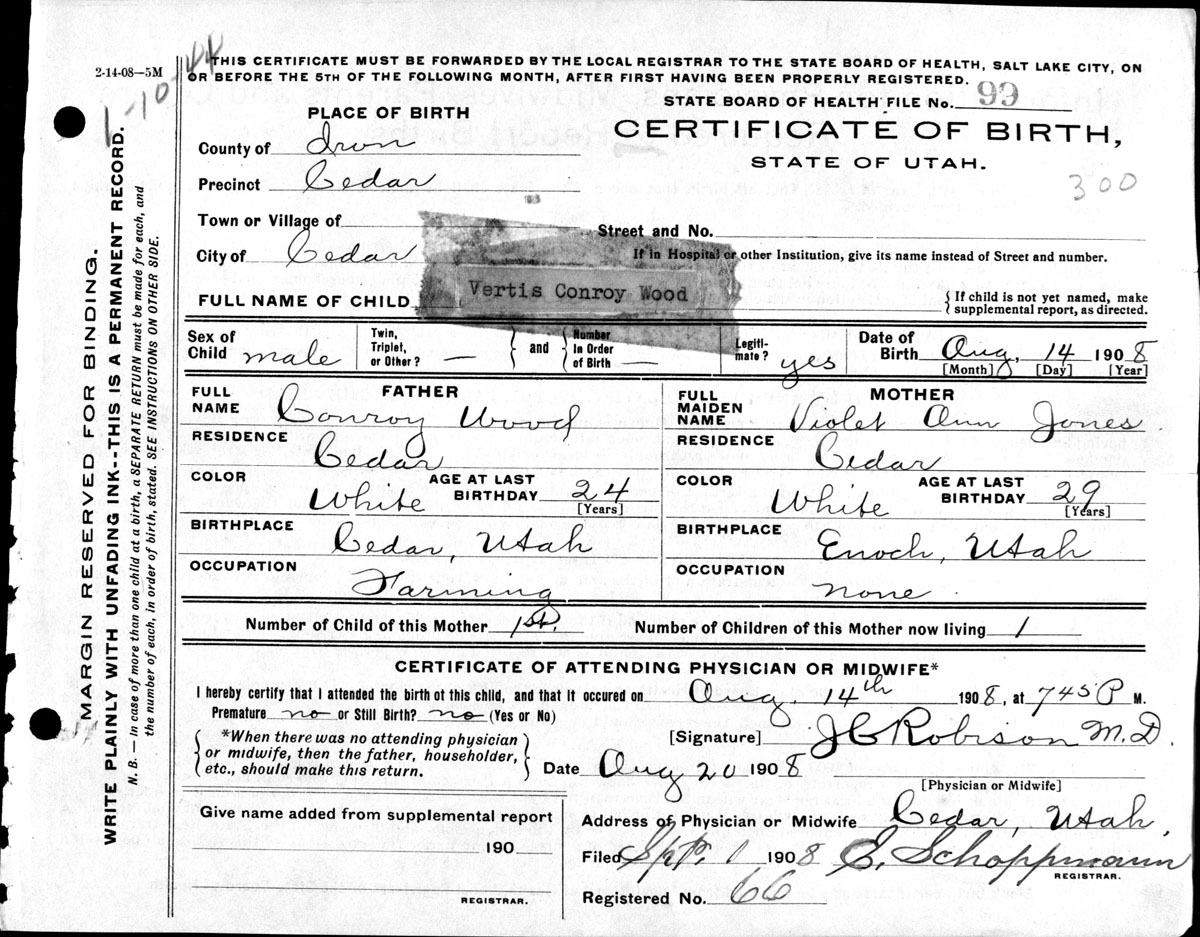 2-14-08—5M
THIS CERTIFICATE MUST BE FORWARDED BY THE LOCAL REGISTRAR TO THE STATE BOARD OF HEALTH, SALT LAKE CITY, ON
OR BEFORE THE 5TH OF THE FOLLOWING MONTH, AFTER FIRST HAVING BEEN PROPERLY REGISTERED.
STATE BOARD OF HEALTH FILE No. 99
CERTIFICATE OF BIRTH,
STATE OF UTAH.
300
PLACE OF BIRTH
County of Iron
Precinct Cedar
Town or Village of
Street and No.
City of Cedar
If in Hospital or other Institution, give its name instead of Street and number.
FULL NAME OF CHILD Vertis Conroy Wood
{If child is not yet named, make
supplemental report, as directed.
Sex of Child male
Twin, Triplet, or Other? —
and
Number In Order of Birth —
Legitimate? yes
Date of Birth Aug. 14 1908
[Month] [Day] [Year]
FATHER
FULL NAME Conroy Wood
RESIDENCE Cedar
COLOR White
AGE AT LAST BIRTHDAY 24
[Years]
BIRTHPLACE Cedar, Utah
OCCUPATION Farming
MOTHER
FULL MAIDEN NAME Violet Ann Jones
RESIDENCE Cedar
COLOR White
AGE AT LAST BIRTHDAY 29
[Years]
BIRTHPLACE Enoch, Utah
OCCUPATION none
Number of Child of this Mother 1st.
Number of Children of this Mother now living 1
CERTIFICATE OF ATTENDING PHYSICIAN OR MIDWIFE*
I hereby certify that I attended the birth of this child, and that it occured on Aug. 14th 1908, at 745 P M.
Premature no or Still Birth? no (Yes or No)
*When there was no attending physician
or midwife, then the father, householder,
etc., should make this return.
[Signature] J C Robison M.D.
Date Aug 20 1908
[Physician or Midwife]
Give name added from supplemental report
190
REGISTRAR.
Address of Physician or Midwife Cedar, Utah.
Filed Sept. 1 1908 E. Schoppmann
REGISTRAR.
Registered No. 66
MARGIN RESERVED FOR BINDING.
WRITE PLAINLY WITH UNFADING INK--THIS IS A PERMANENT RECORD.
N. B. — In case of more than one child at a birth, a SEPARATE RETURN must be made for each, and
the number of each, in order of birth, stated. SEE INSTRUCTIONS ON OTHER SIDE.